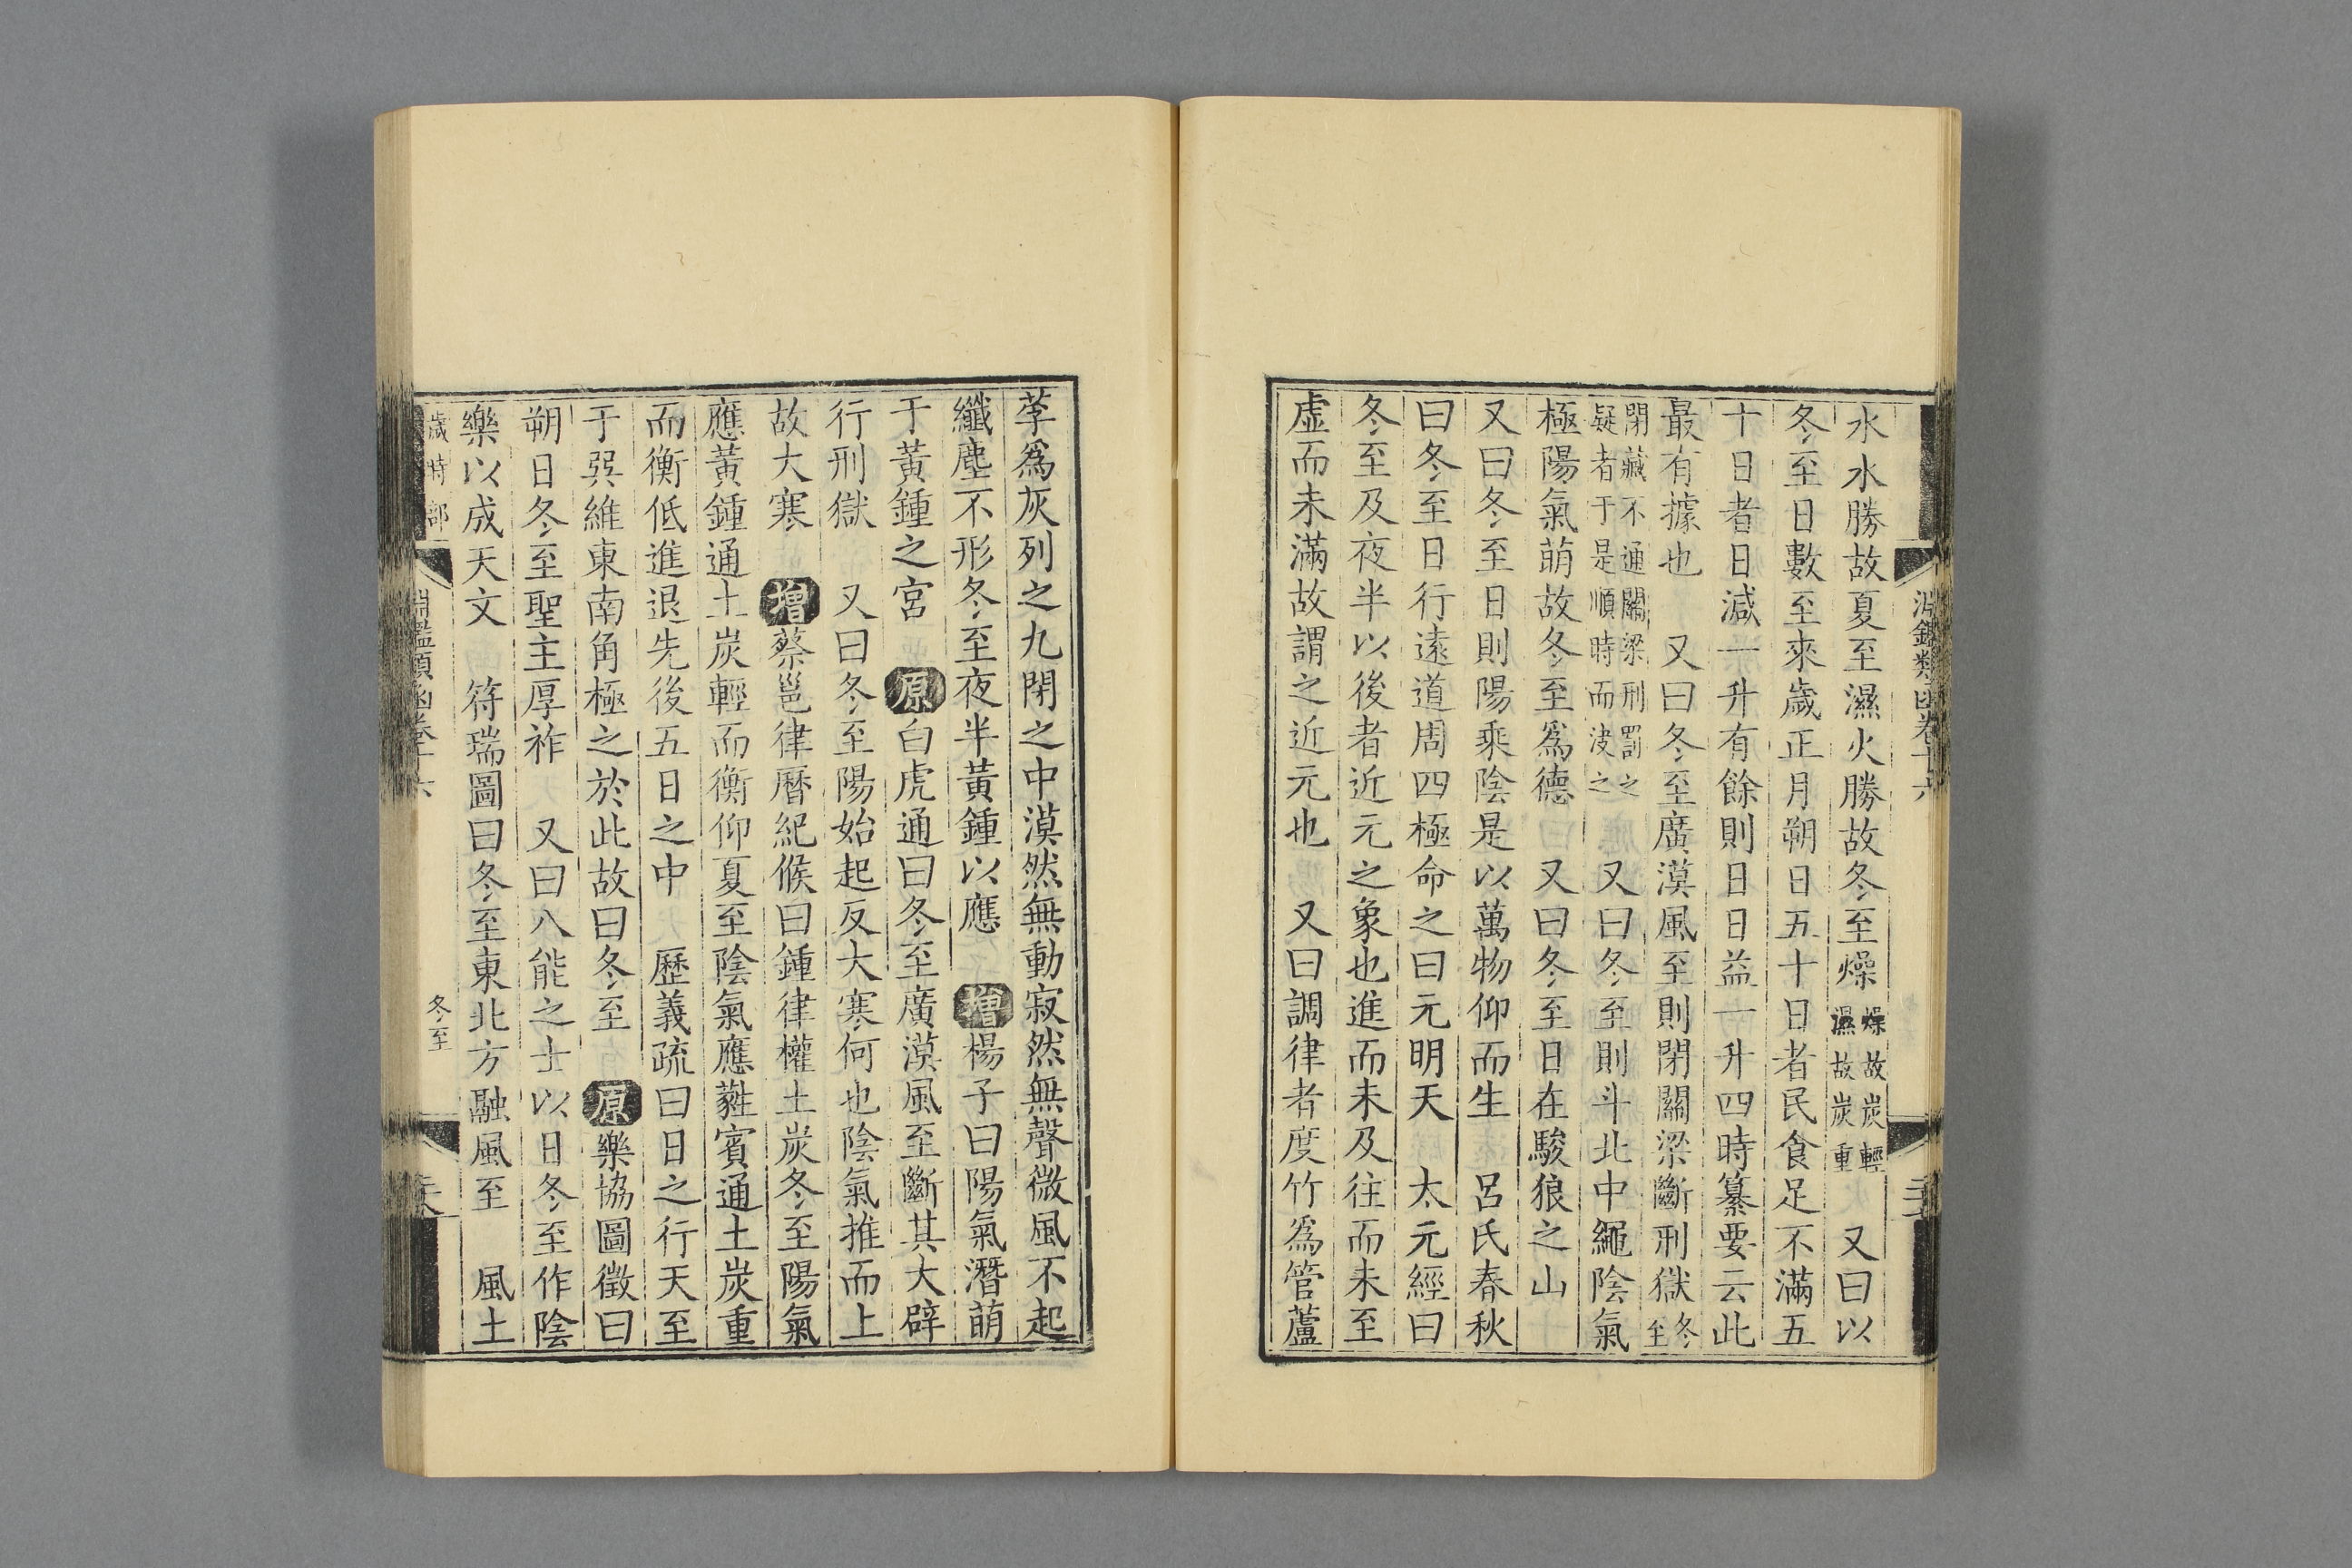 淵鑑類函卷十六
水水勝故夏至濕火勝故冬至燥燥故炭輕濕故炭重　又曰以
冬至日數至來歲正月朔日五十日者民食足不滿五
十日者日減一升有餘則日日益一升四時纂要云此
最有據也　又曰冬至廣漠風至則閉關梁斷刑獄冬至
閉藏不通關梁刑罰之疑者于是順時而決之　又曰冬至則斗北中繩陰氣
極陽氣萌故冬至爲德　又曰冬至日在駿狼之山
又曰冬至日則陽乘陰是以萬物仰而生　呂氏春秋
曰冬至日行遠道周四極命之曰元明天　太元經曰
冬至及夜半以後者近元之象也進而未及往而未至
虛而未滿故謂之近元也　又曰調律者度竹爲管蘆
莩爲灰列之九閉之中漠然無動寂然無聲微風不起
纖塵不形冬至夜半黃鍾以應　增楊子曰陽氣潛萌
于黃鍾之宮　原白虎通曰冬至廣漠風至斷其大辟
行刑獄　又曰冬至陽始起反大寒何也陰氣推而上
故大寒　增蔡邕律曆紀候曰鍾律權土炭冬至陽氣
應黃鍾通土炭輕而衡仰夏至陰氣應蕤賓通土炭重
而衡低進退先後五日之中　歷義疏曰日之行天至
于巽維東南角極之於此故曰冬至　原樂協圖徵曰
朔日冬至聖主厚祚　又曰八能之士以日冬至作陰
樂以成天文　符瑞圖曰冬至東北方融風至　風土
歲時部　淵鑑類函卷十六　冬至